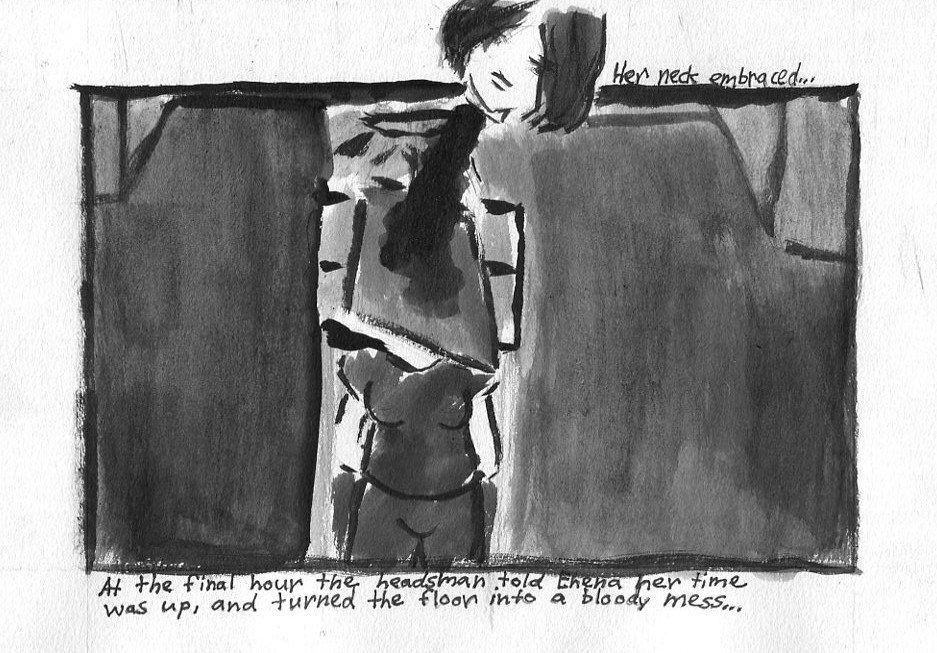 Her neck embraced...
At the final hour the headsman told Enena her time
was up, and turned the floor into a bloody mess...